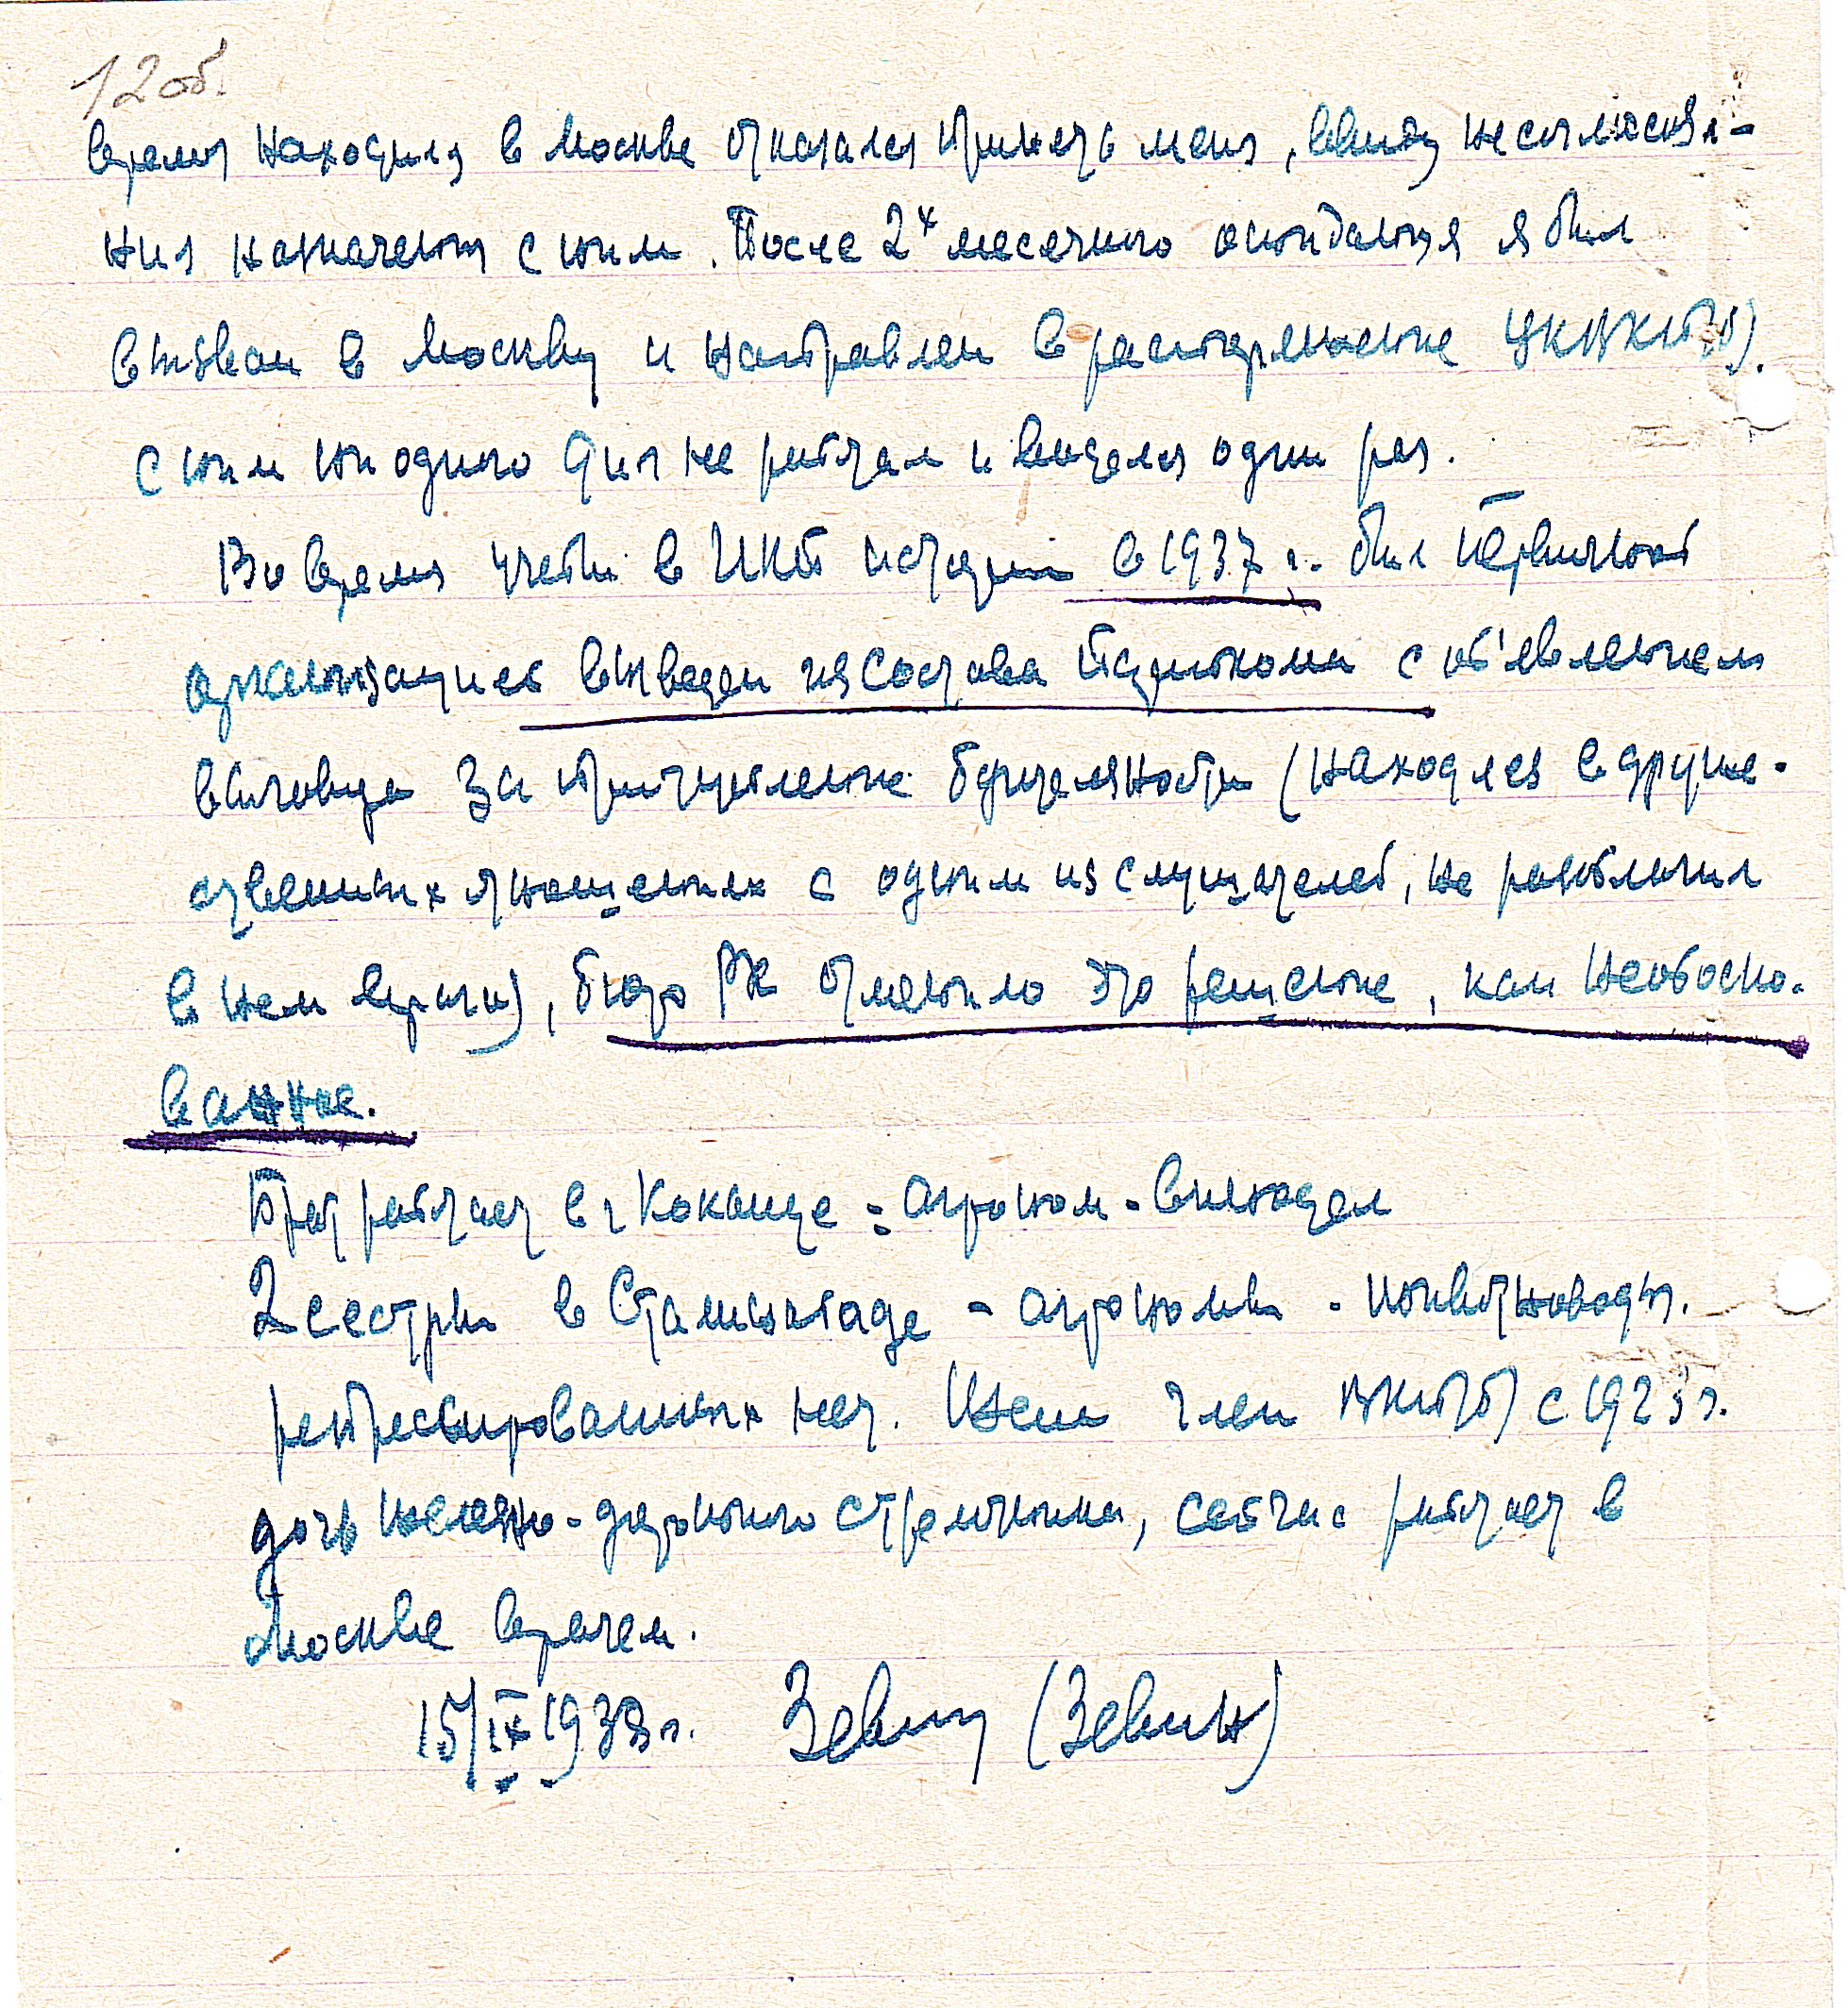 12 об.
время находился в Москве отказался принять меня, ввиду несогласова-
ния назначения с ним. После 2х месячного ожидания я был
вызван в Москву и направлен в распоряжение ЦК ВКП(б).
С ним ни одного дня не работал и виделся один раз.
Во время учебы в ИКП истории в 1937 г. был первичной
организацией выведен из состава парткома с об'явлением
выговора за притупление бдительности (находясь в друже-
ственных отношениях с одним из слушателей, не разоблачил
в нем врага), бюро РК отменило это решение, как необосно-
ванное.
Брат работает в г. Коканде - агроном-виноградел
2 сестры в Сталинабаде - агрономы -
репрессированных нет. Жена член ВКП(б) с 1923 г.
дочь железно-дорожного стрелочника, сейчас работает в
Москве врачем.
15/IX 1938 г. Зевин (Зевин)